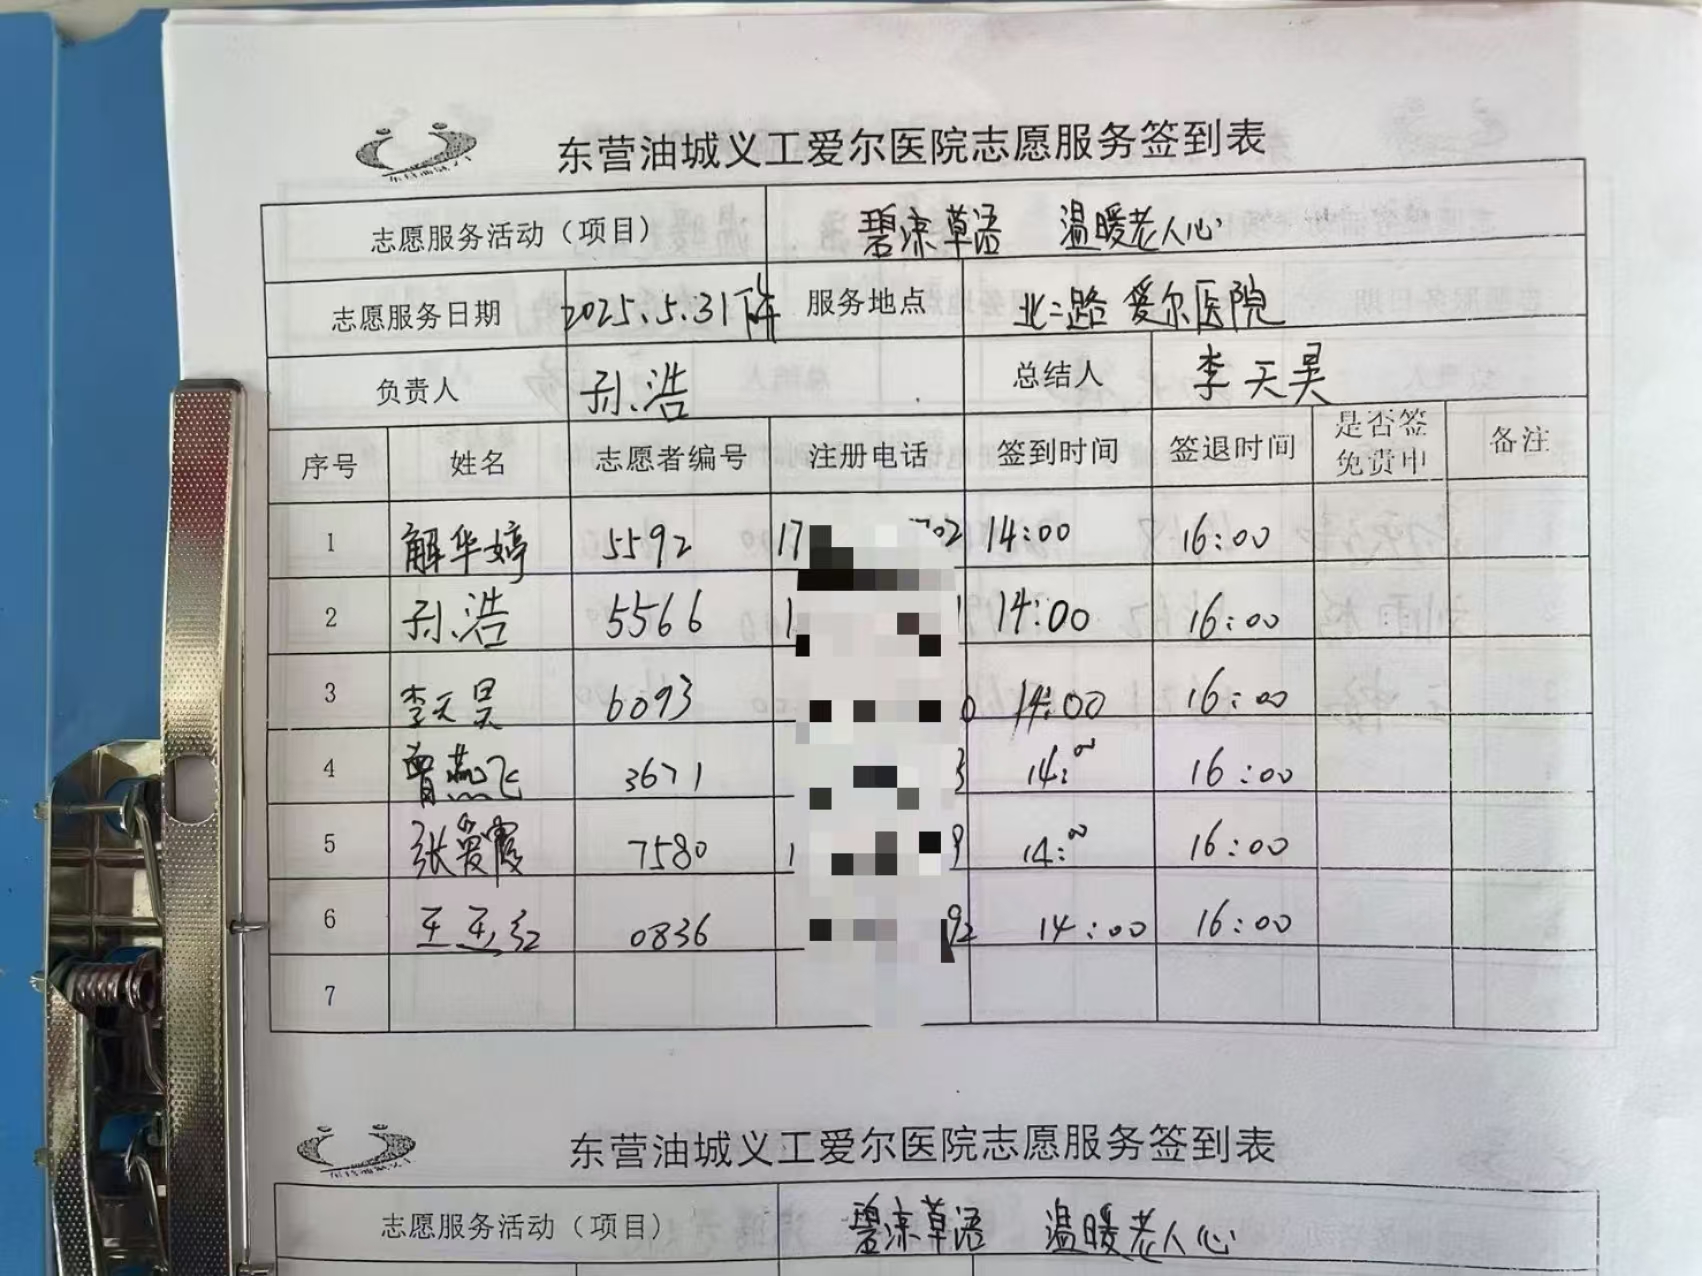 东营油城义工爱尔医院志愿服务签到表
志愿服务活动（项目） 碧凉草语 温暖老人心
志愿服务日期 2025.5.31下午 服务地点 北二路爱尔医院
负责人 孙浩 总结人 李天昊
序号 姓名 志愿者编号 注册电话 签到时间 签退时间 是否签免责申 备注
1 解华婷 5592 17 702 14:00 16:00
2 孙浩 5566 1 1 14:00 16:00
3 李天昊 6093 0 14:00 16:00
4 曾燕飞 3671 3 14:00 16:00
5 张爱霞 7580 1 9 14:00 16:00
6 王玉红 0836 92 14:00 16:00
7
东营油城义工爱尔医院志愿服务签到表
志愿服务活动（项目） 碧凉草语 温暖老人心